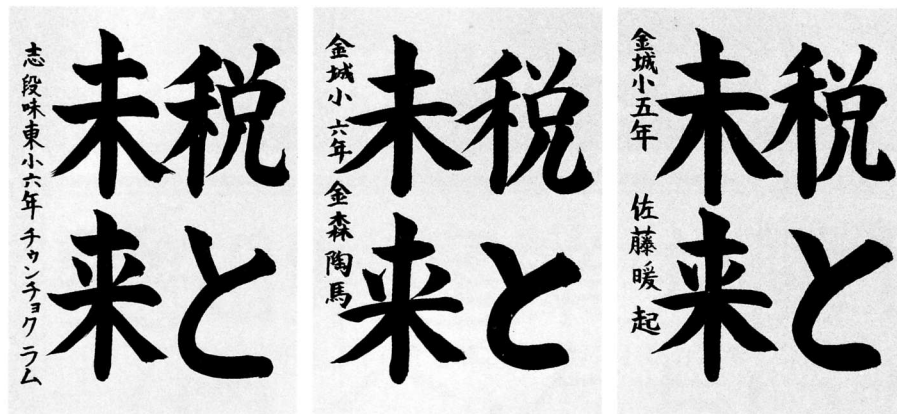 税と
未来
志段味東小六年 チゥンチョク ラム
税と
未来
金城小 六年 金森陶馬
税と
未来
金城小五年 佐藤暖起